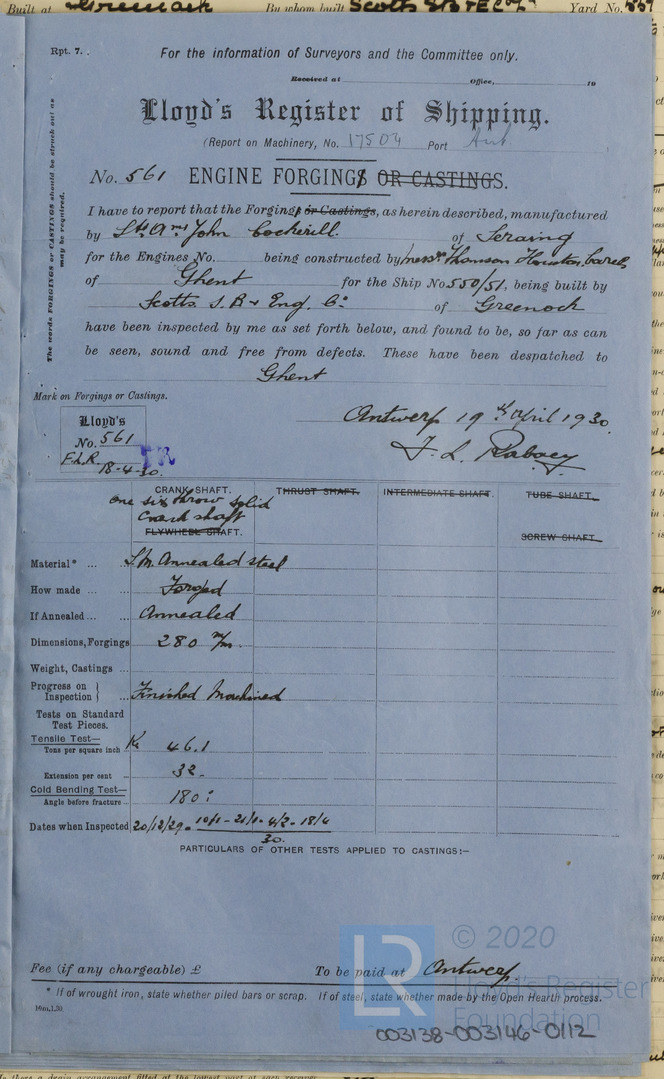 Built at Greenock By whom built Scotts S B & E Co Ld Yard No. 551
Rpt. 7.
For the information of Surveyors and the Committee only.
Received at Office, 19
Lloyd's Register of Shipping.
(Report on Machinery, No. 17504 Port Ant
No. 561 ENGINE FORGINGS OR CASTINGS.
The words FORGINGS or CASTINGS should be struck out as
may be required.
I have to report that the Forgings or Castings, as herein described, manufactured
by Sté Ame John Cockerill. of Seraing
for the Engines No. being constructed by Messrs Thomson Houston, Carels
of Ghent for the Ship No 550/51, being built by
Scotts S. B & Eng. Co of Greenock
have been inspected by me as set forth below, and found to be, so far as can
be seen, sound and free from defects. These have been despatched to
Ghent
Mark on Forgings or Castings.
Antwerp 19th April 1930.
F. L. Rabaey
Lloyd's
No. 561
F.L.R.
18-4-30.
CRANK SHAFT. THRUST SHAFT. INTERMEDIATE SHAFT. TUBE SHAFT.
One six throw solid
Crank shaft
FLYWHEEL SHAFT. SCREW SHAFT.
Material* ... S.M. Annealed steel
How made ... Forged
If Annealed ... Annealed
Dimensions, Forgings 280 m/m.
Weight, Castings ...
Progress on Inspection } ... Finished Machined
Tests on Standard
Test Pieces.
Tensile Test—
Tons per square inch .. K. 46.1
Extension per cent ... 32.
Cold Bending Test—
Angle before fracture ... 180°.
Dates when Inspected 20/12/29 - 10/1 - 21/1 - 4/2 - 18/4
30.
PARTICULARS OF OTHER TESTS APPLIED TO CASTINGS:—
Fee (if any chargeable) £ To be paid at Antwerp.
* If of wrought iron, state whether piled bars or scrap. If of steel, state whether made by the Open Hearth process.
LR © 2020
Lloyd's Register
Foundation
003138-003146-0112